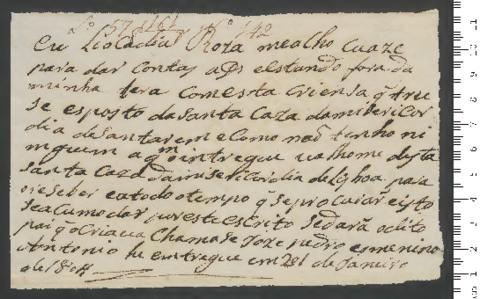 Eu Liocadia Roza me alho cuaze
para dar contas a Ds e estando fora da
minha tera com esta Criensa q truce
se esposto da Santa Caza da miziricor
dia de Santarem e Como não tenho ni
mguem a qm o intregue vai home desta
Santa Caza da mizericordia de Lisboa para
o reseber e a todo o tempo q se procurar
se a Cumodar por este escrito se dará o dito
pai q o Criava Chamase Joze pedro e o menino
Antonio he emtregue em 281 de Janeiro
de 1804